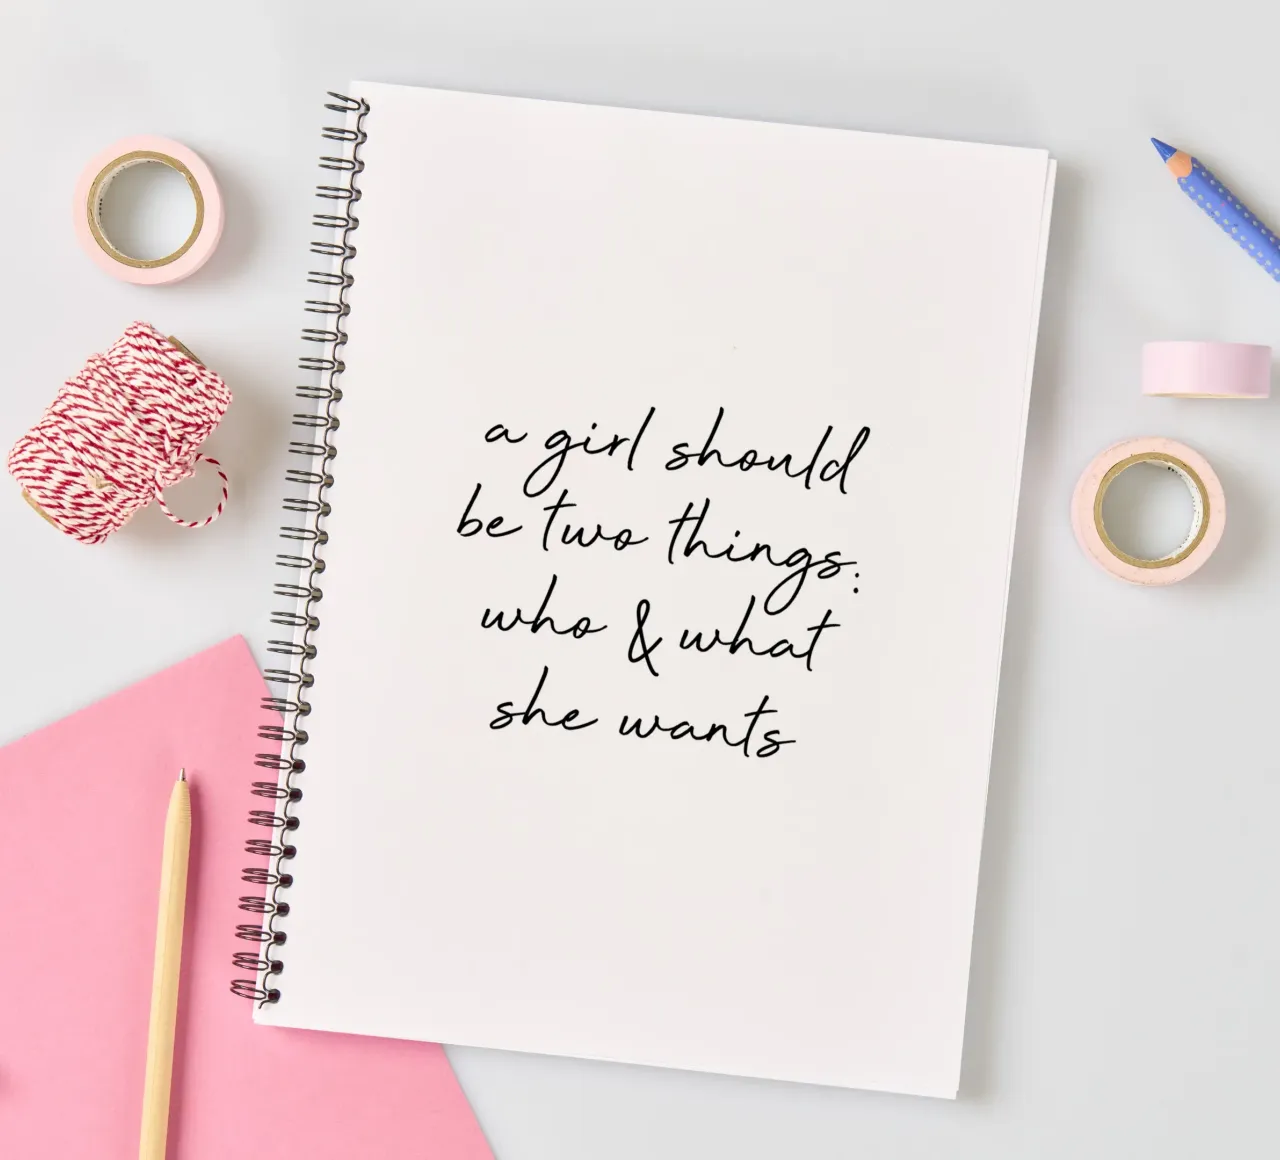 a girl should
be two things:
who & what
she wants